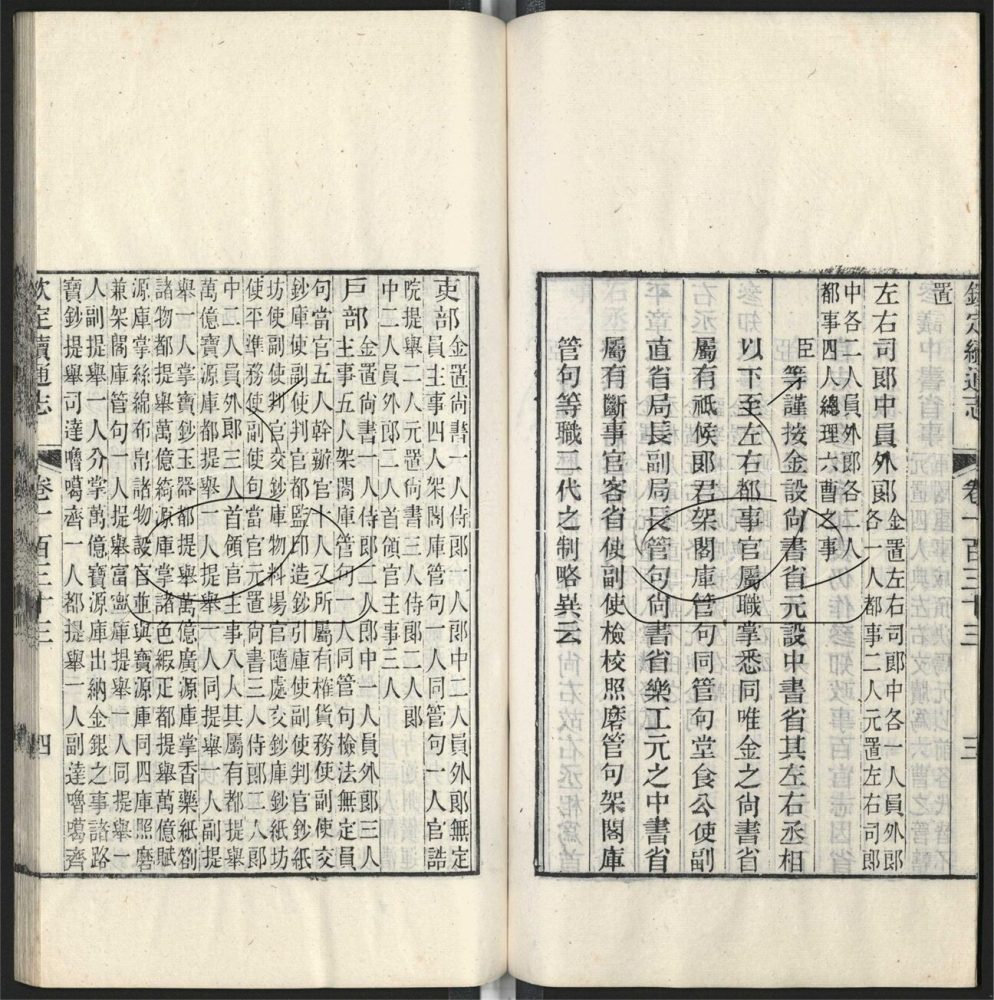 欽定續通志 卷一百三十三 三
置
左右司郎中員外郎 金置左右司郎中各一人員外郎
各一人都事二人元置左右司郎
中各二人員外郎各二人
都事四人總理六曹之事
臣等謹按金設尚書省元設中書省其左右丞相
以下至左右都事官屬職掌悉同唯金之尚書省
屬有祗候郎君架閣庫管勾同管勾堂食公使副
直省局長副局長管勾尚書省樂工元之中書省
屬有斷事官客省使副使檢校照磨管勾架閣庫
管勾等職二代之制略異云
吏部 金置尚書一人侍郎一人郎中二人員外郎無定
員主事四人架閣庫管勾一人同管勾一人官誥
院提舉二人元置尚書三人侍郎二人郎
中二人員外郎二人首領官主事三人
戶部 金置尚書一人侍郎二人郎中三人員外郎三人
主事五人架閣庫管勾一人同管勾檢法無定員
勾當官五人幹辦官十人又所屬有榷貨務使副使交
鈔庫使副使判官都監印造鈔引庫使副使判官鈔紙
坊使副使判官交鈔庫物料場官隨處交鈔庫鈔紙坊
使平準務使副使勾當官元置尚書三人侍郎二人郎
中二人員外郎三人首領官主事八人其屬有都提舉
萬億寶源庫都提舉一人提舉一人同提舉一人副提
舉一人掌寶鈔玉器都提舉萬億廣源庫掌香藥紙劄
諸物都提舉萬億綺源庫掌諸色緞疋都提舉萬億賦
源庫掌絲綿布帛諸物設官並與寶源庫同四庫照磨
兼架閣庫管勾一人提舉富寧庫提舉一人同提舉一
人副提舉一人分掌萬億寶源庫出納金銀之事諸路
寶鈔提舉司達嚕噶齊一人都提舉一人副達嚕噶齊
欽定續通志 卷一百三十三 四